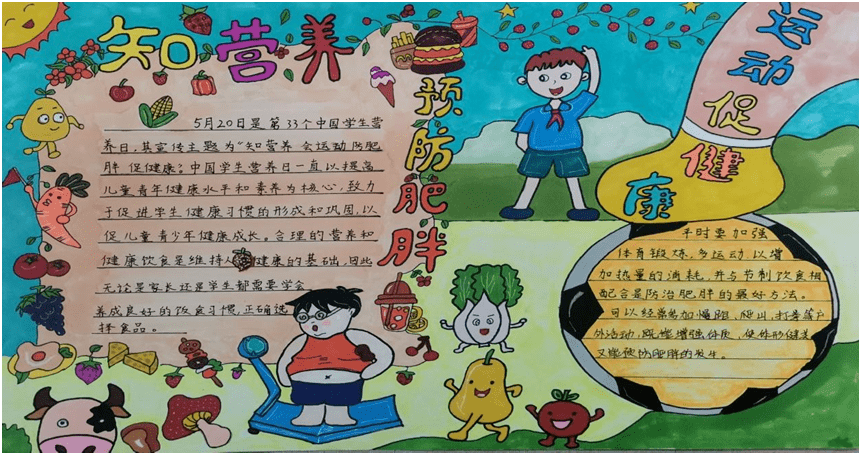 知营养
预防肥胖
运动促健康
5月20日是第33个中国学生营
养日，其宣传主题为“知营养 会运动 防肥
胖 促健康”。中国学生营养日一直以提高
儿童青年健康水平和素养为核心，致力
于促进学生健康习惯的形成和巩固，以
促儿童青少年健康成长。合理的营养和
健康饮食是维持人健康的基础，因此
无论是家长还是学生都需要学会
养成良好的饮食习惯，正确选
择食品。
平时要加强
体育锻炼，多运动，以增
加热量的消耗，并与节制饮食相
配合是防治肥胖的最好方法。
可以经常参加慢跑、爬山、打拳等户
外活动，既能增强体质，使体形健美，
又能预防肥胖的发生。